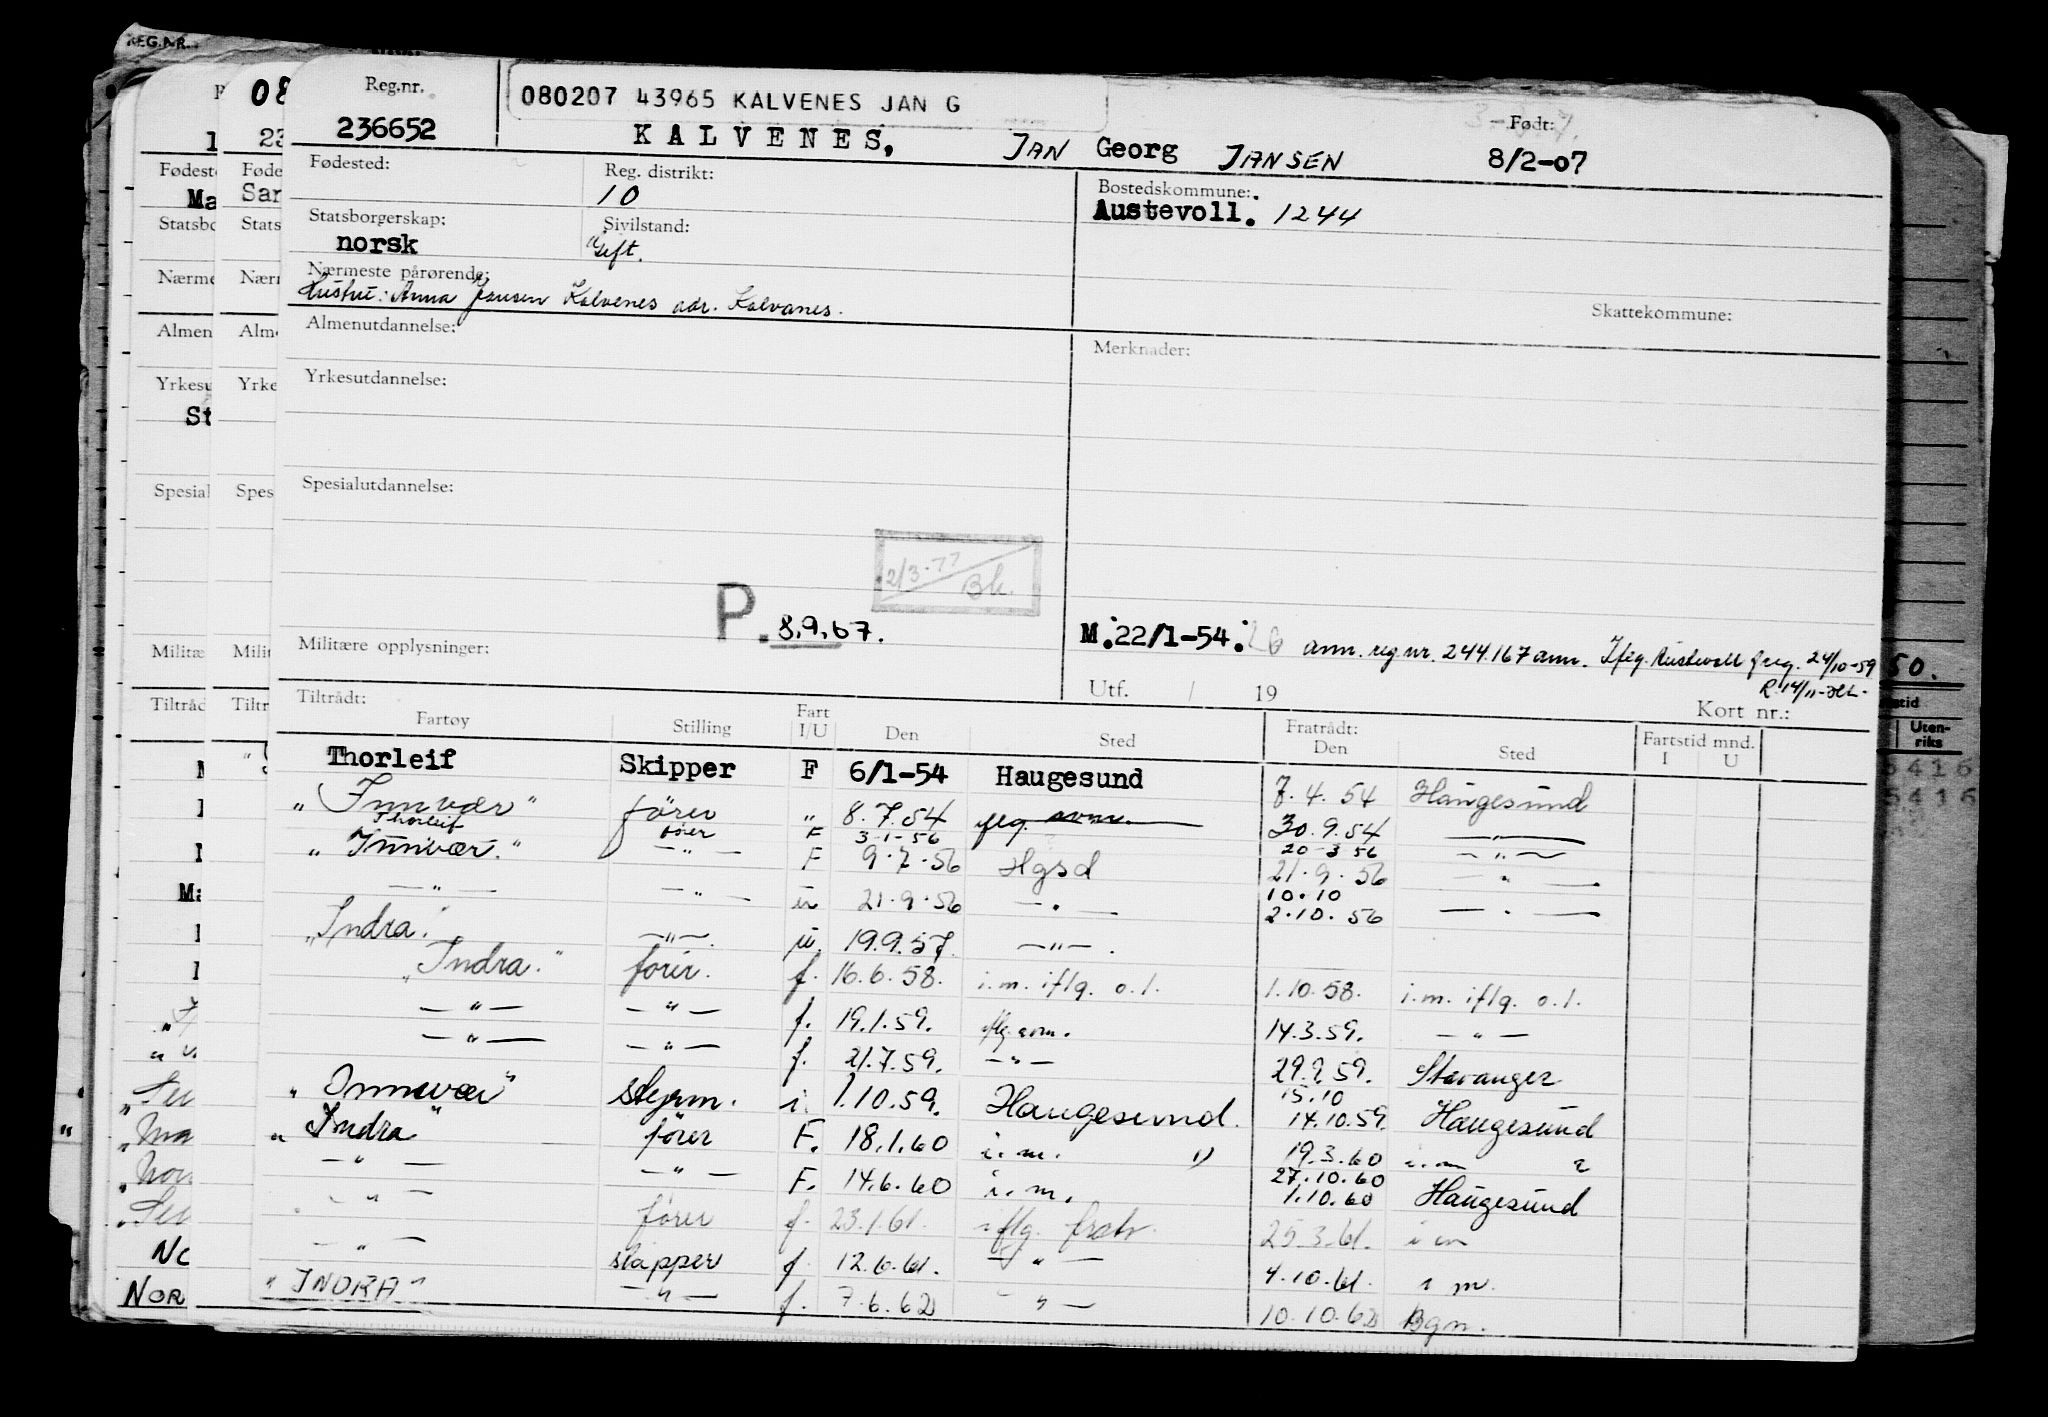 REG.NR.
Reg.nr.
236652
080207 43965 KALVENES JAN G
KALVENES, JAN Georg JANSEN
Født:
8/2-07
Fødested:
Reg. distrikt:
10
Bostedskommune:
Austevoll. 1244
Statsborgerskap:
norsk
Sivilstand:
Gift.
Nærmeste pårørende:
Hustru: Anna Jansen Kalvenes adr. Kalvanes.
Skattekommune:
Almenutdannelse:
Merknader:
Yrkesutdannelse:
Spesialutdannelse:
2/3-77
Bk.
P. 8.9.67.
M.22/1-54. ann. reg nr. 244.167 ann. Ifлg. Austevoll freg. 24/10-59
R 14/11
Militære opplysninger:
Utf. / 19
Kort nr.:
Tiltrådt:
Fartøy Stilling Fart I/U Den Sted Fratrådt: Den Sted Fartstid mnd. I U
Thorleif Skipper F 6/1-54 Haugesund 7.4.54 Haugesund
"Innvær" fører " 8.7.54 30.9.54 — " —
Thorleif fører F 3-1-56 20-3-56 — " —
"Innvær." — " — F 9.7.56 Hgsd 21.9.56 — " —
— " — — " — u 21.9.56 — " — 10.10 2.10.56 — " —
"Indra." — " —. u. 19.9.57. — " —.
"Indra." fører. f. 16.6.58. i.m. iflg. o.l. 1.10.58. i.m. iflg. o.l.
— " — — " — f. 19.1.59. 14.3.59. — " —
— " — — " — f. 21.7.59. — " — 29.9.59. Stavanger
"Innvær" styrm. i. 1.10.59. Haugesund. 15.10 14.10.59. Haugesund
"Indra" fører F. 18.1.60 i.m. 19.3.60 i.m
— " — — " — F. 14.6.60 i.m. 27.10.60 1.10.60 Haugesund
— " — fører f. 23.1.61. iflg. fratr. 25.3.61. i m
— " — skipper f. 12.6.61. — " — 4.10.61. i m.
"INDRA" — " — f. 7.6.62 — " — 10.10.62 Bgn.